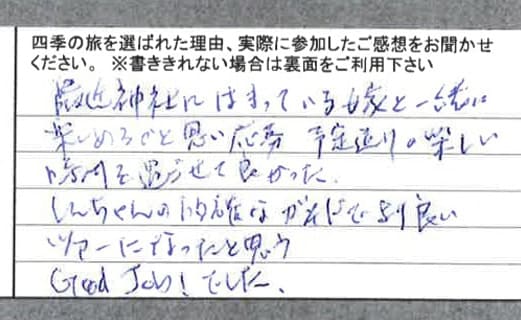 四季の旅を選ばれた理由、実際に参加したご感想をお聞かせ
ください。 ※書ききれない場合は裏面をご利用下さい
最近神社にはまっている家と一緒に
楽しめると思い応募 予定通りの楽しい
時間を過ごせて良かった。
しんちゃんの的確なガイドでより良い
ツアーになったと思う
Good Job! でした。